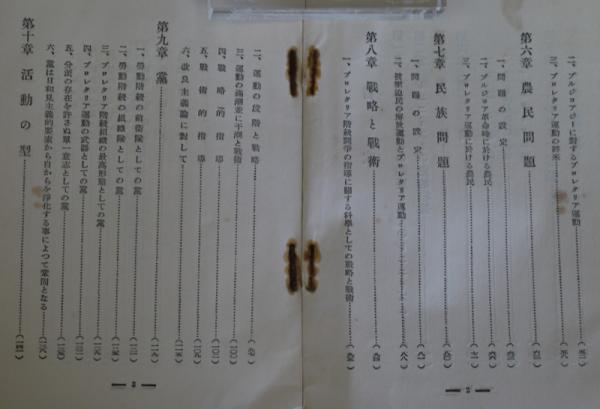 二、ブルジョアジーに對するプロレタリア運動
三、プロレタリア運動の將來
第六章 農民問題
一、問題の設定
二、ブルジョア革命時に於ける農民
三、プロレタリア運動に於ける農民
第七章 民族問題
一、問題の設定
二、被壓迫民の解放運動とプロレタリア運動
第八章 戰略と戰術
一、プロレタリア階級鬪爭の指導に關する科學としての戰略と戰術
— 2 —
二、運動の段階と戰略
三、運動の滿潮並に干潮と戰術
四、戰略的指導
五、戰術的指導
六、改良主義論に對して
第九章 黨
一、勞働階級の前衞隊としての黨
二、勞働階級の組織隊としての黨
三、プロレタリア階級組織の最高形態としての黨
四、プロレタリア運動の武器としての黨
五、分派の存在を許さぬ單一意志としての黨
六、黨は日和見主義的要素から自からを淨化する事によつて鞏固となる
第十章 活動の型
— 3 —